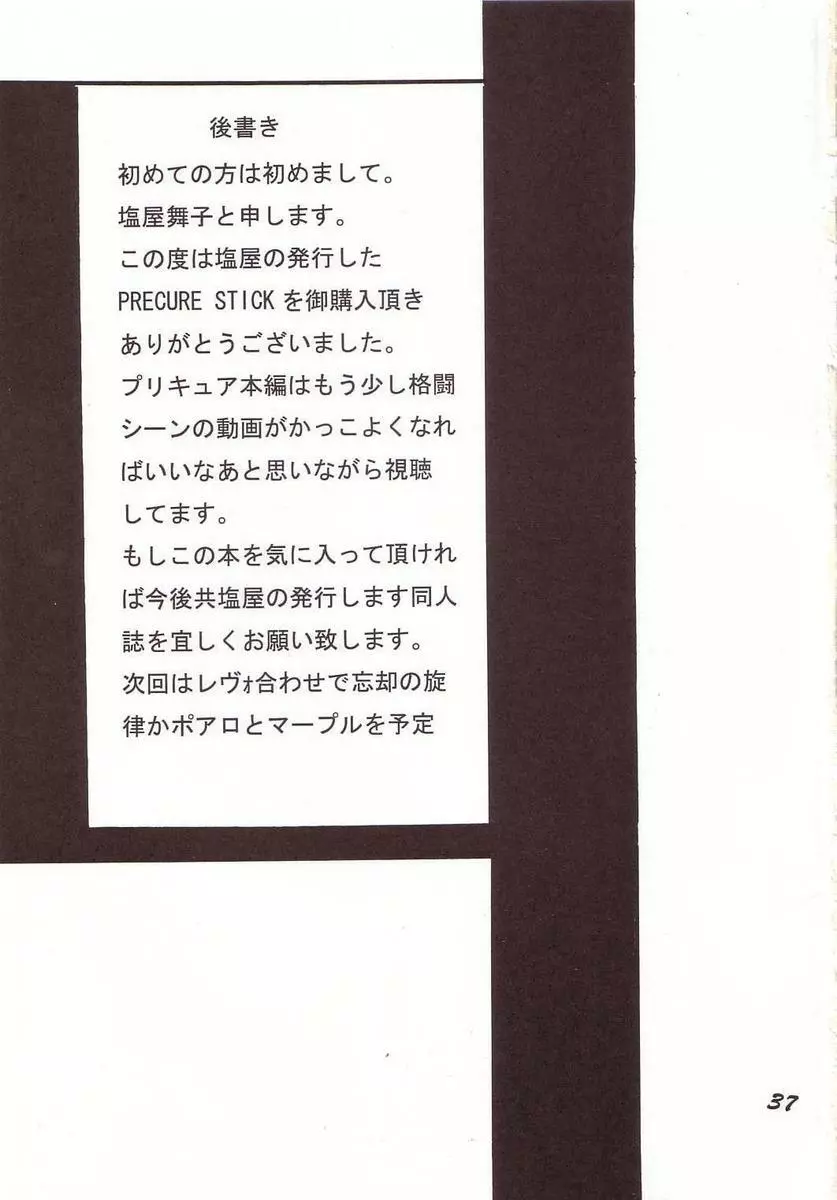 後書き
初めての方は初めまして。
塩屋舞子と申します。
この度は塩屋の発行した
PRECURE STICKを御購入頂き
ありがとうございました。
プリキュア本編はもう少し格闘
シーンの動画がかっこよくなれ
ばいいなあと思いながら視聴
してます。
もしこの本を気に入って頂けれ
ば今後共塩屋の発行します同人
誌を宜しくお願い致します。
次回はレヴォ合わせで忘却の旋
律かポアロとマープルを予定
37